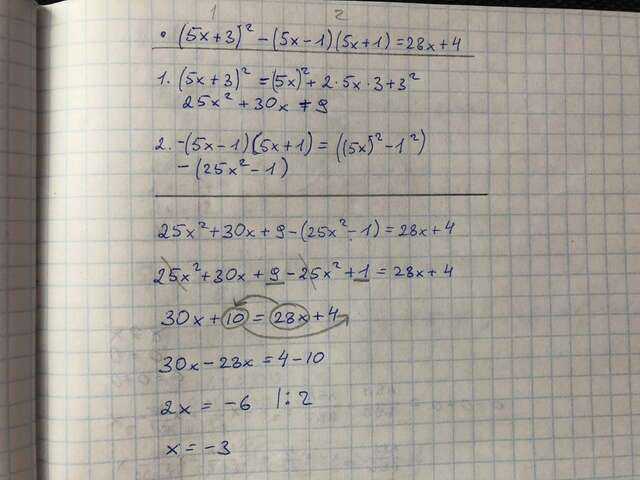 1 2
• (5x+3)² - (5x-1)(5x+1) = 28x+4
1. (5x+3)² = (5x)² + 2·5x·3+3²
25x² + 30x + 9
2. -(5x-1)(5x+1) = ((5x)² - 1²)
- (25x² - 1)
25x² + 30x + 9 - (25x² - 1) = 28x + 4
25x² + 30x + 9 - 25x² + 1 = 28x + 4
30x + 10 = 28x + 4
30x - 28x = 4 - 10
2x = -6 |:2
x = -3